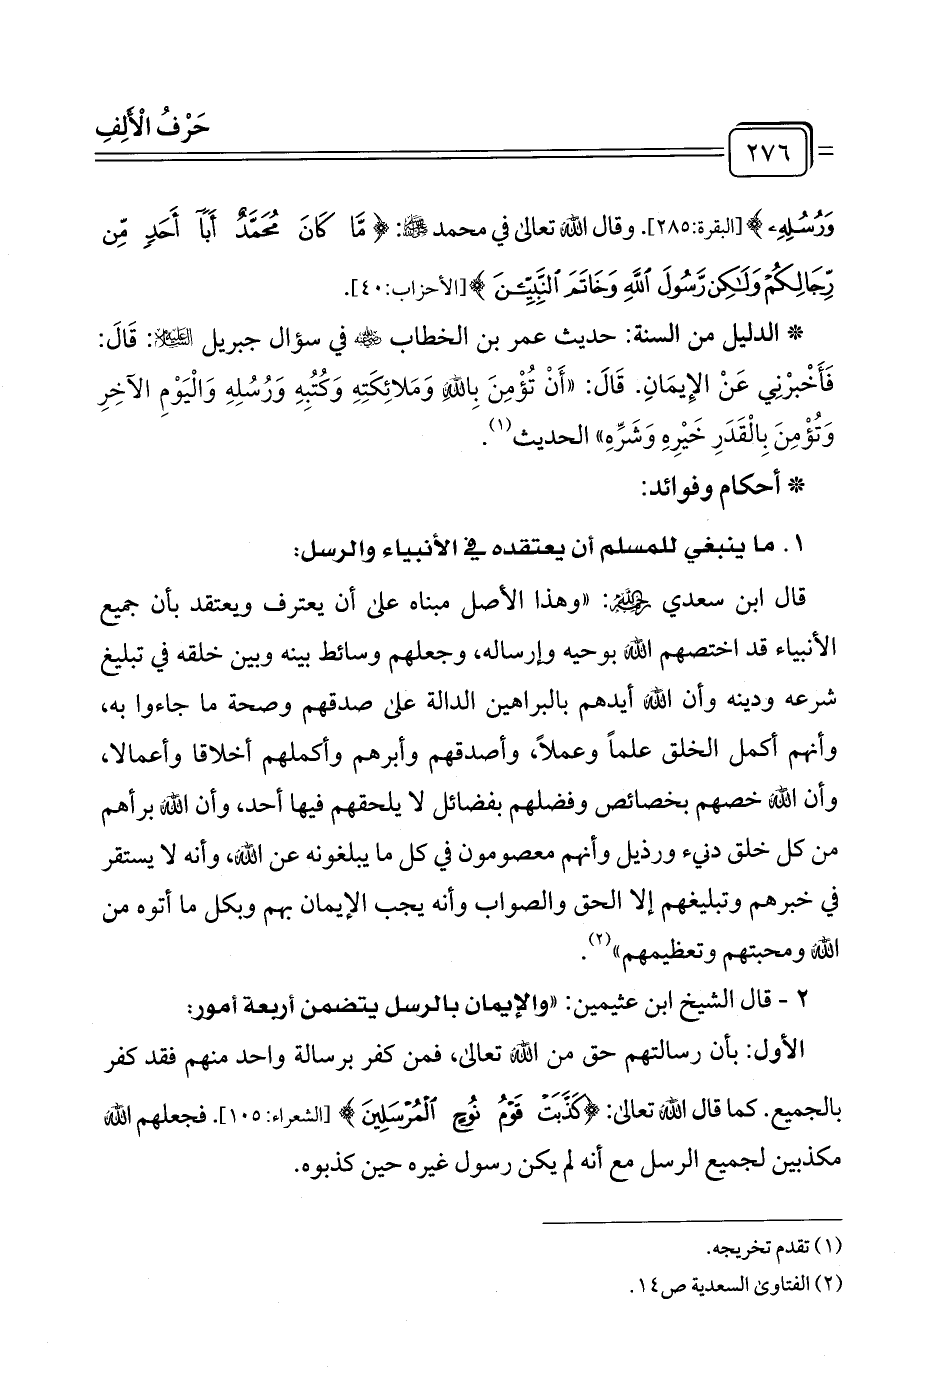 حَرْفُ الْأَلِفِ
٢٧٦
وَرُسُلِهِۦ ﴾ [البقرة:٢٨٥]. وقال الله تعالى في محمد ﷺ: ﴿ مَّا كَانَ مُحَمَّدٌ أَبَآ أَحَدٍ مِّن
رِّجَالِكُمْ وَلَـٰكِن رَّسُولَ ٱللَّهِ وَخَاتَمَ ٱلنَّبِيِّـۧنَ ﴾ [الأحزاب:٤٠].
* الدليل من السنة: حديث عمر بن الخطاب رضي الله عنه في سؤال جبريل عليه السلام: قَالَ:
فَأَخْبِرْنِي عَنْ الإِيمَانِ. قَالَ: «أَنْ تُؤْمِنَ بِاللهِ وَمَلائِكَتِهِ وَكُتُبِهِ وَرُسُلِهِ وَالْيَوْمِ الآخِرِ
وَتُؤْمِنَ بِالْقَدَرِ خَيْرِهِ وَشَرِّهِ» الحديث(١).
* أحكام وفوائد:
١. ما ينبغي للمسلم أن يعتقده في الأنبياء والرسل:
قال ابن سعدي رحمه الله: «وهذا الأصل مبناه على أن يعترف ويعتقد بأن جميع
الأنبياء قد اختصهم الله بوحيه وإرساله، وجعلهم وسائط بينه وبين خلقه في تبليغ
شرعه ودينه وأن الله أيدهم بالبراهين الدالة على صدقهم وصحة ما جاءوا به،
وأنهم أكمل الخلق علماً وعملاً، وأصدقهم وأبرهم وأكملهم أخلاقا وأعمالا،
وأن الله خصهم بخصائص وفضلهم بفضائل لا يلحقهم فيها أحد، وأن الله برأهم
من كل خلق دنيء ورذيل وأنهم معصومون في كل ما يبلغونه عن الله، وأنه لا يستقر
في خبرهم وتبليغهم إلا الحق والصواب وأنه يجب الإيمان بهم وبكل ما أتوه من
الله ومحبتهم وتعظيمهم»(٢).
٢ - قال الشيخ ابن عثيمين: «والإيمان بالرسل يتضمن أربعة أمور:
الأول: بأن رسالتهم حق من الله تعالى، فمن كفر برسالة واحد منهم فقد كفر
بالجميع. كما قال الله تعالى: ﴿كَذَّبَتْ قَوْمُ نُوحٍ ٱلْمُرْسَلِينَ ﴾ [الشعراء:١٠٥]. فجعلهم الله
مكذبين لجميع الرسل مع أنه لم يكن رسول غيره حين كذبوه.
(١) تقدم تخريجه.
(٢) الفتاوى السعدية ص١٤.